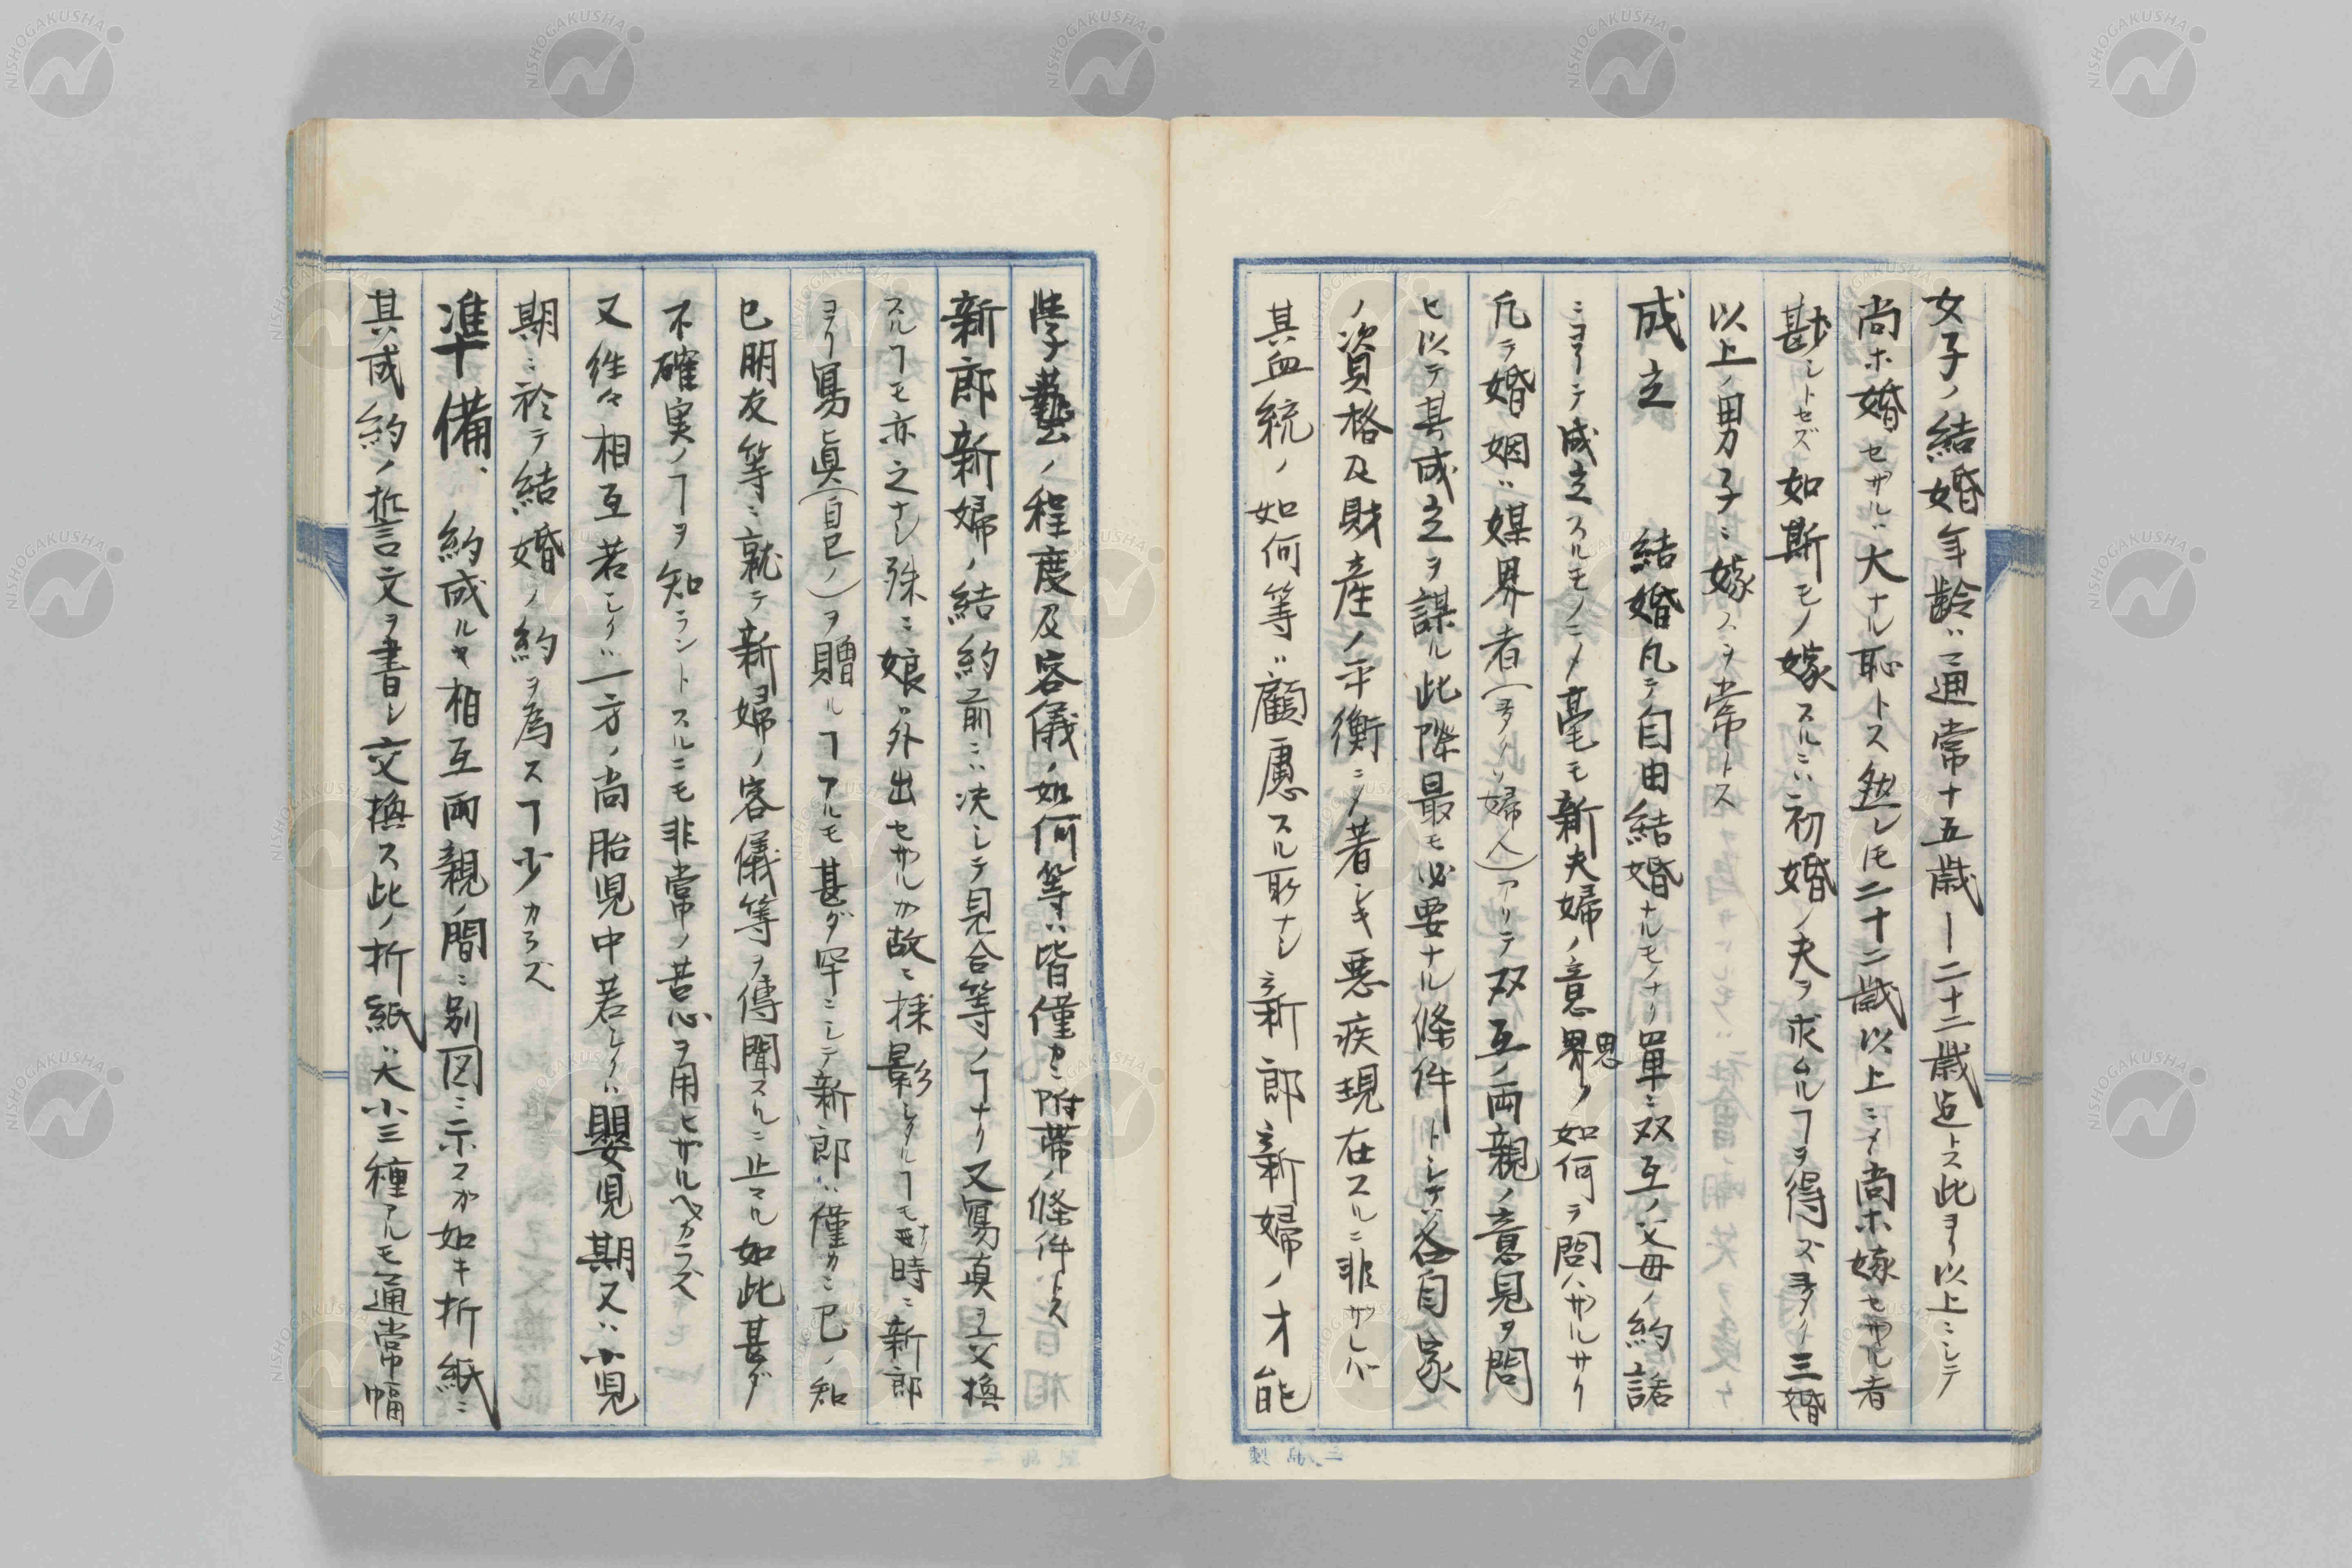 女子ノ結婚年齢ハ通常十五歳ー二十二歳迄トス此ヨリ以上ニシテ
尚ホ婚セザルハ大ナル恥トス然レヒモ二十二歳以上ニメ尚ホ嫁セザル者
尠シトセズ如斯モノ嫁スルニハ初婚ノ夫ヲ求ムルヿヲ得ズ多クハ三婚
以上ノ男子ニ嫁スヲ常トス
成立 結婚凡テ自由結婚ナルモノナリ單ニ双互ノ父母ノ約諾
ニヨリテ成立スルモノニメ毫モ新夫婦ノ意思ノ如何ヲ問ハザルナリ
凡ラ婚姻ハ媒界者(多クハ婦人)アリテ双互ノ両親ノ意見ヲ問
ヒ以テ其成立ヲ謀ル此際最モ必要ナル條件トシテハ各自家
ノ資格及財産ノ平衡ニメ著シキ悪疾現在スルニ非ザレバ
其血統ノ如何等ハ顧慮スル所ナシ新郎新婦ノ才能
學藝ノ程度及容儀ノ如何等ハ皆僅カニ附帯ノ條件トス
新郎新婦ノ結約前ニハ決シテ見合等ノヿナリ又寫真ヲ交換
スルヿモ亦之ナシ殊ニ娘ハ外出セザルカ故ニ採影シタルヿモナク時ニ新郎
ヨリ寫眞(自己ノ)ヲ贈ルヿアルモ甚ダ罕ニシテ新郎ハ僅カニ已ノ知
已朋友等ニ就テ新婦ノ容儀等ヲ傳聞スルニ止マル如此甚ダ
不確実ノヿヲ知ラントスルニモ非常ノ苦心ヲ用ヒザルベカラズ
又往々相互若シクハ一方ノ尚胎児中若シクハ嬰児期又ハ小児
期ニ於テ結婚ノ約ヲ為スヿ少カラズ
準備、 約成ルヤ相互両親ノ間ニ別図ニ示スガ如キ折紙ニ
其成約ノ誓文ヲ書シ交換ス此ノ折紙ハ大小三種アルモ通常幅
三島製
NISHOGAKUSHA